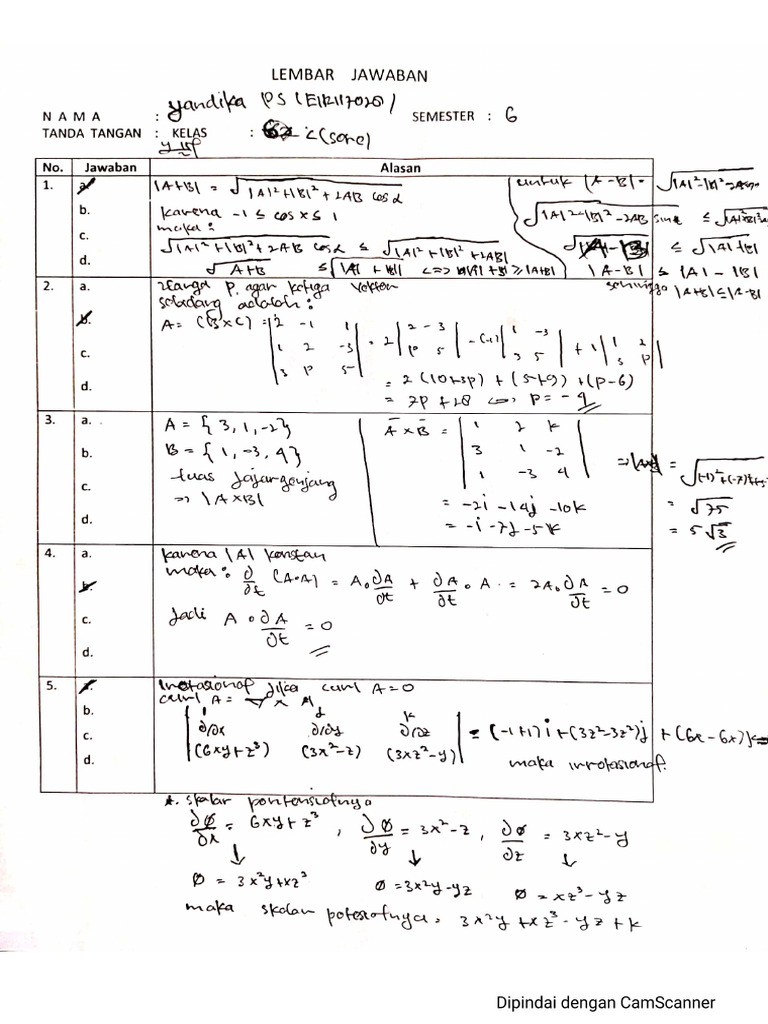 LEMBAR JAWABAN
NAMA : Yandika PS (E1R117020)
SEMESTER : 6
TANDA TANGAN : KELAS : C (sore)
No. Jawaban Alasan
1. a. b. c. d.
|A+B| = √|A|²+|B|²+2AB cos α
karena -1 ≤ cos x ≤ 1
maka :
√|A|²+|B|²+2AB cos α ≤ √|A|²+|B|²+2AB|
√A+B ≤ √|A|+|B|| <=> |A|+|B| ≥ |A+B|
untuk |A-B| =
√|A|-|B| ≤ √|A|+|B|
|A-B| ≤ |A|-|B|
sehingga |A+B| ≤ |A-B|
2. a. b. c. d.
Harga p. agar ketiga vektor
sebidang adalah :
A = (B×C) = |2 -1 1
1 2 -3
3 p 5| = 2 |2 -3
p 5| - (-1) |1 -3
3 5| + 1 |1 2
3 p|
= 2(10+3p) + (5+9) + (p-6)
= 7p + 28 <=> p = -4
3. a. b. c. d.
A = {3, 1, -2}
B = {1, -3, 4}
luas jajargenjang
=> |A×B|
A × B = |1 2 k
3 1 -2
1 -3 4|
= -2i - 14j - 10k
= -i - 7j - 5k
= √75
= 5√3
4. a. b. c. d.
karena |A| konstan
maka : ∂/∂t (A.A) = A. ∂A/∂t + ∂A/∂t . A = 2A. ∂A/∂t = 0
Jadi A . ∂A/∂t = 0
5. a. b. c. d.
Irrotasional jika curl A = 0
curl A = ∇ × A
|i j k
∂/∂x ∂/∂y ∂/∂z
(6xy+z³) (3x²-z) (3xz²-y)| = (-1+1)i + (3z²-3z²)j + (6x-6x)k =
maka irrotasional.
*. skalar pontensialnya
∂Ø/∂x = 6xy+z³, ∂Ø/∂y = 3x²-z, ∂Ø/∂z = 3xz²-y
↓ ↓ ↓
Ø = 3x²y+xz³ Ø = 3x²y-yz Ø = xz³-yz
maka skalar potesialnya = 3x²y+xz³-yz+k
Dipindai dengan CamScanner